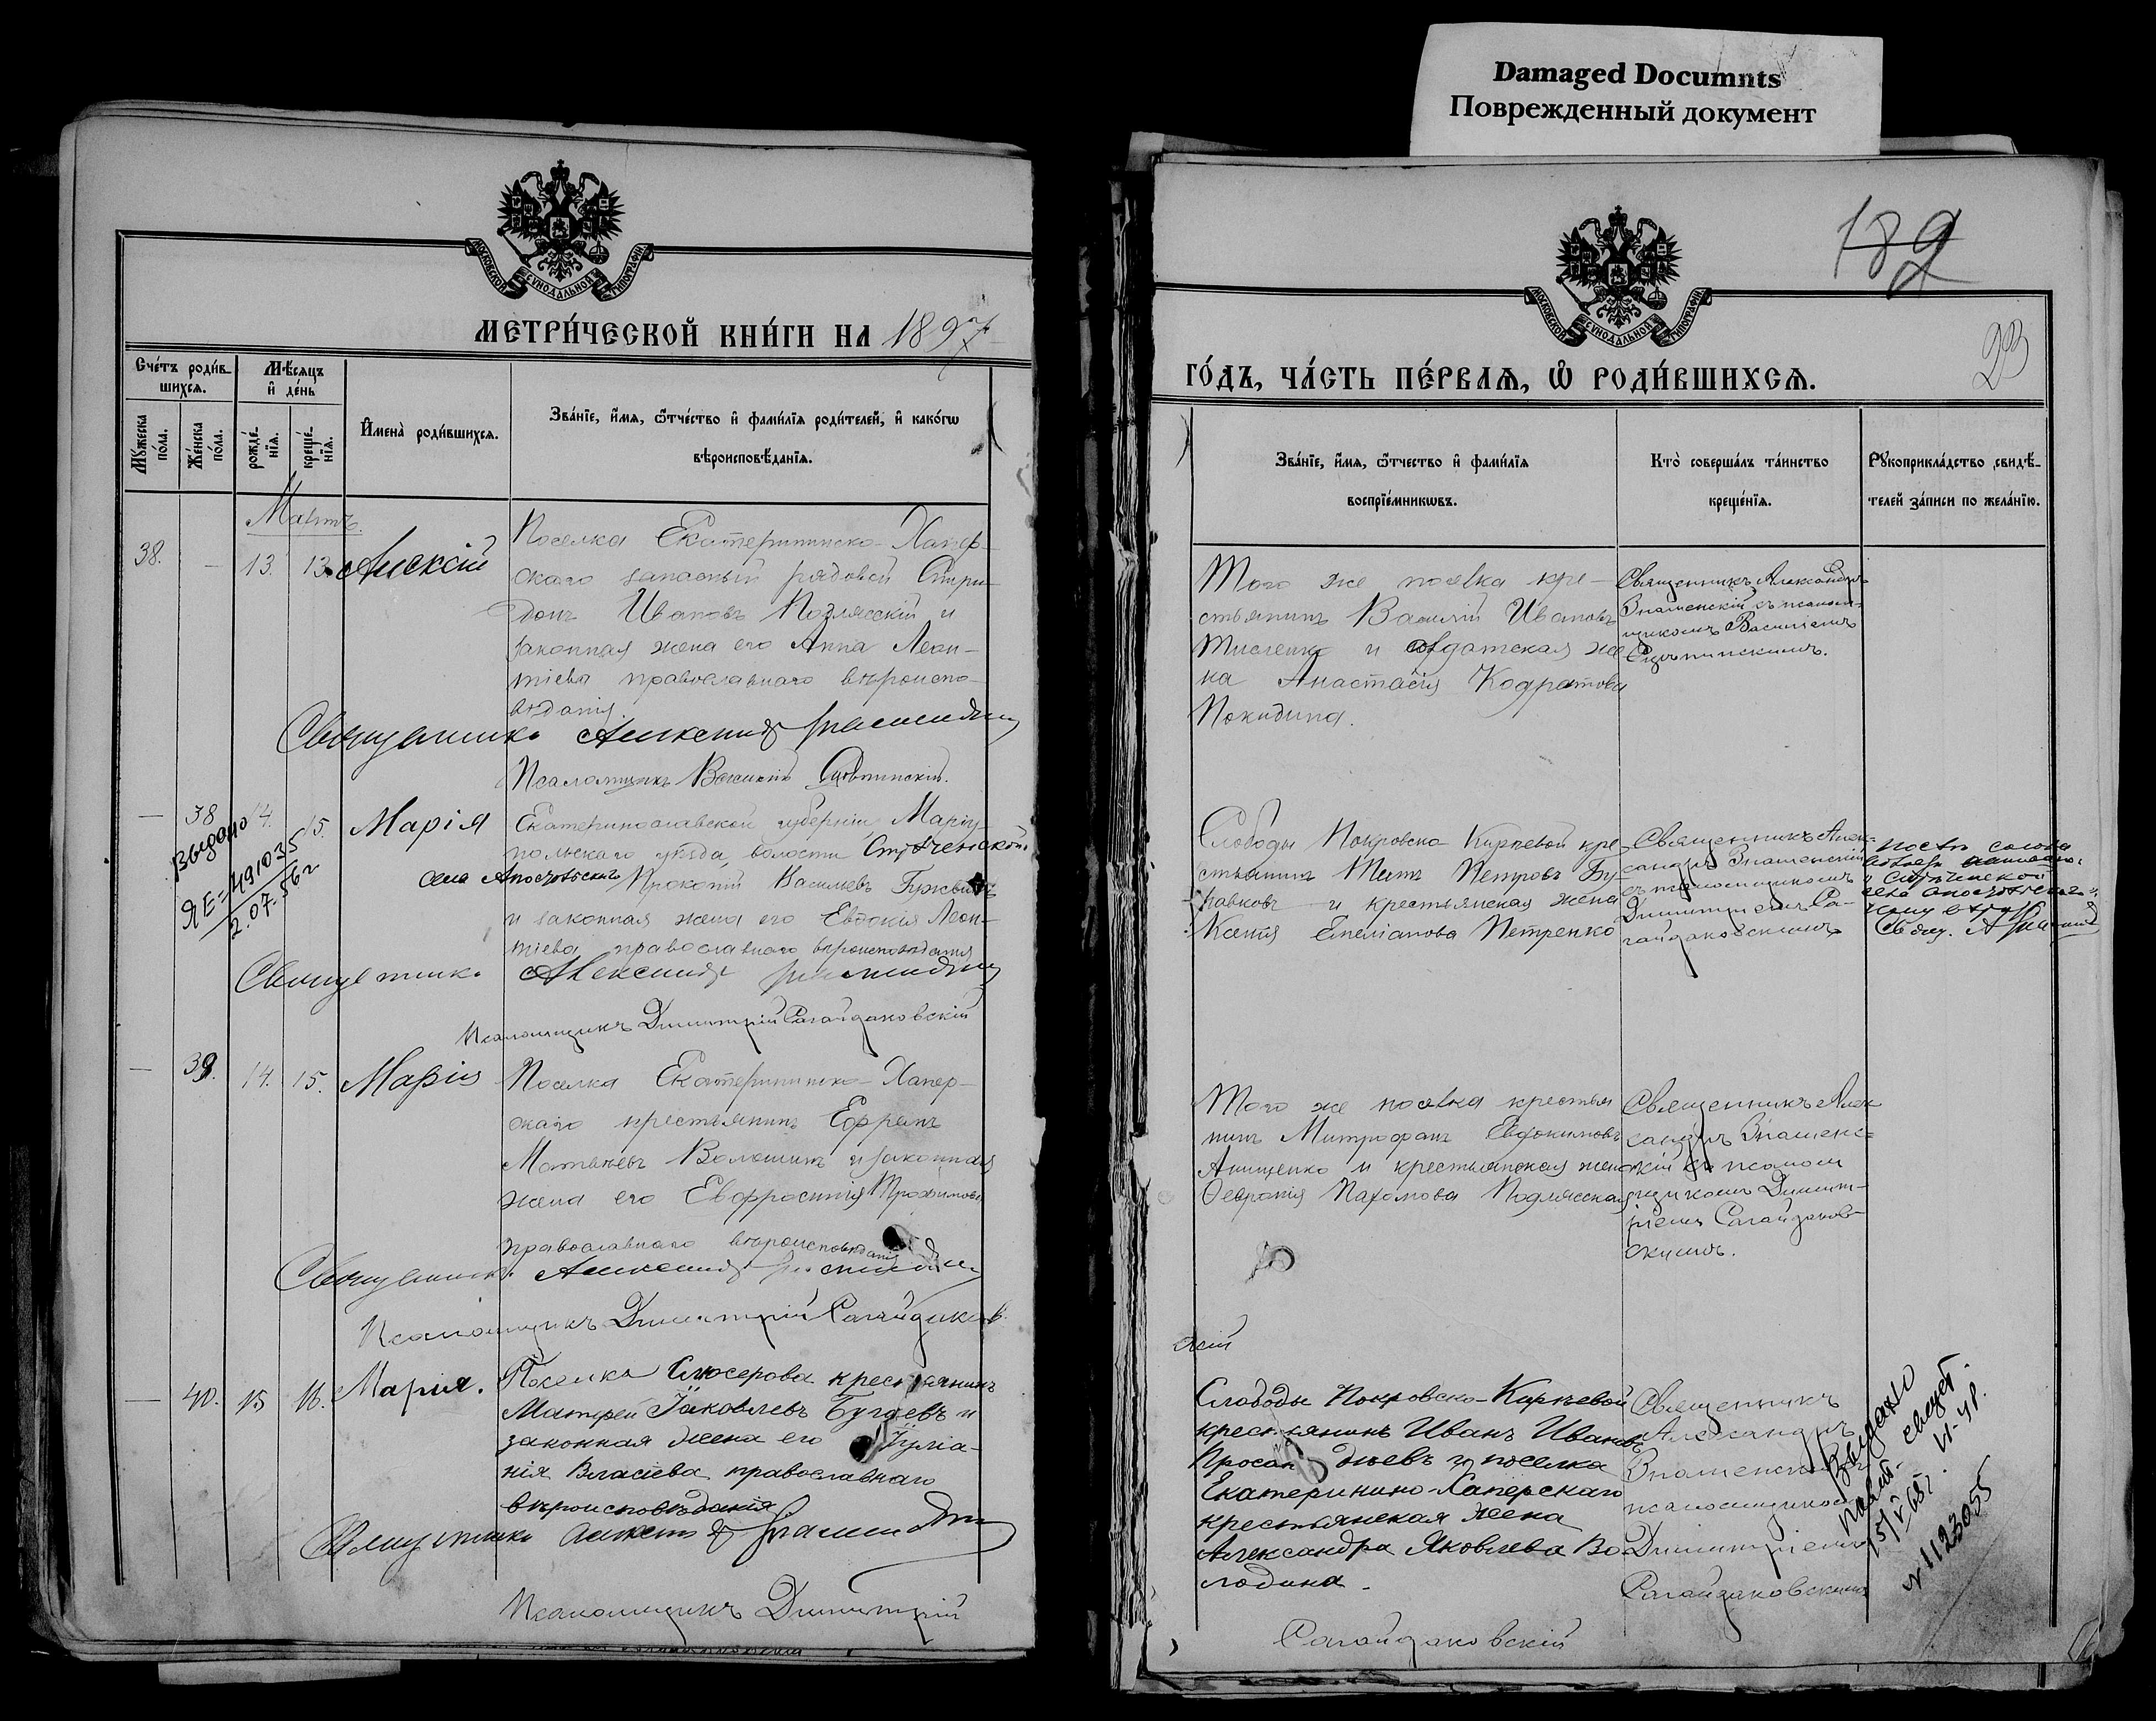 Damaged Documnts
Поврежденный документ
МОСКОВСКОЙ СѴНОДАЛЬНОЙ ТИПОГРАФІИ
МЕТРИ́ЧЕСКОЙ КНИ́ГИ НА 1897
Сче́тъ роди́в-
шихсѧ.
Мѣ́сѧцъ
и҆ де́нь
Мꙋ́жеска
по́ла.
Же́нска
по́ла.
рожде́-
нїѧ.
креще́-
нїѧ.
И҆мена̀ роди́вшихсѧ.
Зва́нїе, и҆́мѧ, ѻ҆́тчество и҆ фами́лїѧ роди́телей, и҆ како́гѡ
вѣроисповѣ́данїѧ.
Мартъ.
38. - 13. 13. Алексій
Поселка Екатериниско-Хапер-
скаго запасный рядовой Спири-
донъ Ивановъ Подлясскій и
законная жена его Анна Леон-
тіева православнаго вѣроиспо-
вѣданія.
Священникъ Александръ Знаменскій
Псаломщикъ Василій
— 38 14. 15. Марія
Екатеринославской губерніи Маріу-
польскаго уѣзда, волости
села Прокопій Васильевъ
и законная жена его Евдокія Леон-
тіева православнаго вѣроисповѣданія
Выдано
ЯЕ=491035
2.07.56 г
Священникъ Александръ Знаменскій
Псаломщикъ Димитрій Сагайдаковскій
— 39. 14. 15. Марія
Поселка Екатериниско-Хапер-
скаго крестьянинъ Ефремъ
Матвѣевъ Волошинъ и законная
жена его Евфросинія Трофимова
православнаго вѣроисповѣданія
Священникъ Александръ Знаменскій
Псаломщикъ Димитрій Сагайдаков-
— 40. 15 16. Марія.
Поселка Слюсерова крестьянинъ
Матфей Іаковлевъ Бугаевъ и
законная жена его Іуліа-
нія Власіева православнаго
вѣроисповѣданія
Священникъ Александръ Знаменскій
Псаломщикъ Димитрій
189
23
МОСКОВСКОЙ СѴНОДАЛЬНОЙ ТИПОГРАФІИ
ГО́ДЪ, ЧА́СТЬ ПЕ́РВАѦ, Ѡ҆ РОДИ́ВШИХСѦ.
Зва́нїе, и҆́мѧ, ѻ҆́тчество и҆ фами́лїѧ
воспрїе́мникѡвъ.
Кто̀ соверша́лъ та́инство
креще́нїѧ.
Рꙋкоприкла́дство свидѣ́-
телей за́писи по жела́нїю.
Того же посёлка кре-
стьянинъ Василій Ивановъ
Тисленко и солдатская же
на Анастасія Кодратова
Покидина.
Священникъ Александръ
Знаменскій съ псалом-
щикомъ Василіемъ
Слободы Покровско-Кирпевой кре-
стьянинъ Титъ Петровъ Бу-
равковъ и крестьянская жена
Ксенія Емеліанова Петренко
Священникъ Алек-
сандръ Знаменскій
съ псаломщикомъ
Димитріемъ Са-
гайдаковскимъ
Того же посёлка крестья
нинъ Митрофанъ Евдокимовъ
Анищенко и крестьянская жена
Февронія Пахомова Подлясская
Священникъ Алек
сандръ Знаменс-
кій съ псалом
щикомъ Димит-
ріемъ Сагайдаков-
скимъ.
скій
Слободы Покровско-Кирпевой
крестьянинъ Иванъ Ивановъ
и поселка
Екатеринино-Хаперскаго
крестьянская жена
Александра Яковлева Во-
лодина.
Священникъ
Александръ
Знаменскій
псаломщикомъ
Димитріемъ
Сагайдаковскимъ
Выдано
№ 1123055
Сагайдаковскій